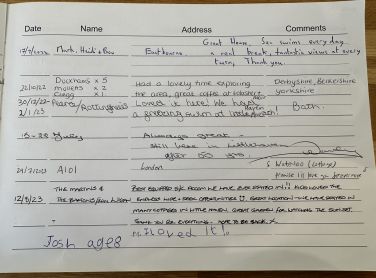 Date Name Address Comments
Great House, Sea swims every day
17/9/2022 Mark, Heidi & Eastbourne. a real treat, fantastic views at every
turn, Thank you.
Dockhans x 5
22/10/22 x 2 Had a lovely time exploring Derbyshire, Berkshire
Clegg x 1 the area, great coffee at Yorkshire
30/12/22- Pears/ Loved it here! We had Bath.
2/1/23 a great swim at
15-22 July Always great -
Still here in Littlehaven
after 50 yrs.
29/7/2023 A101 London Waterloo (cottage)
House I'll love you forever
The Martins & Best equipped S/C accom we have ever stayed in!! Kids loved the
12/8/23 The endless hide & seek opportunities. Great location - we have stayed in
many cottages in Little Haven. Great garden for watching the sunset.
Thank you for everything. Hope to be back. x
Josh age 8 I loved it!!